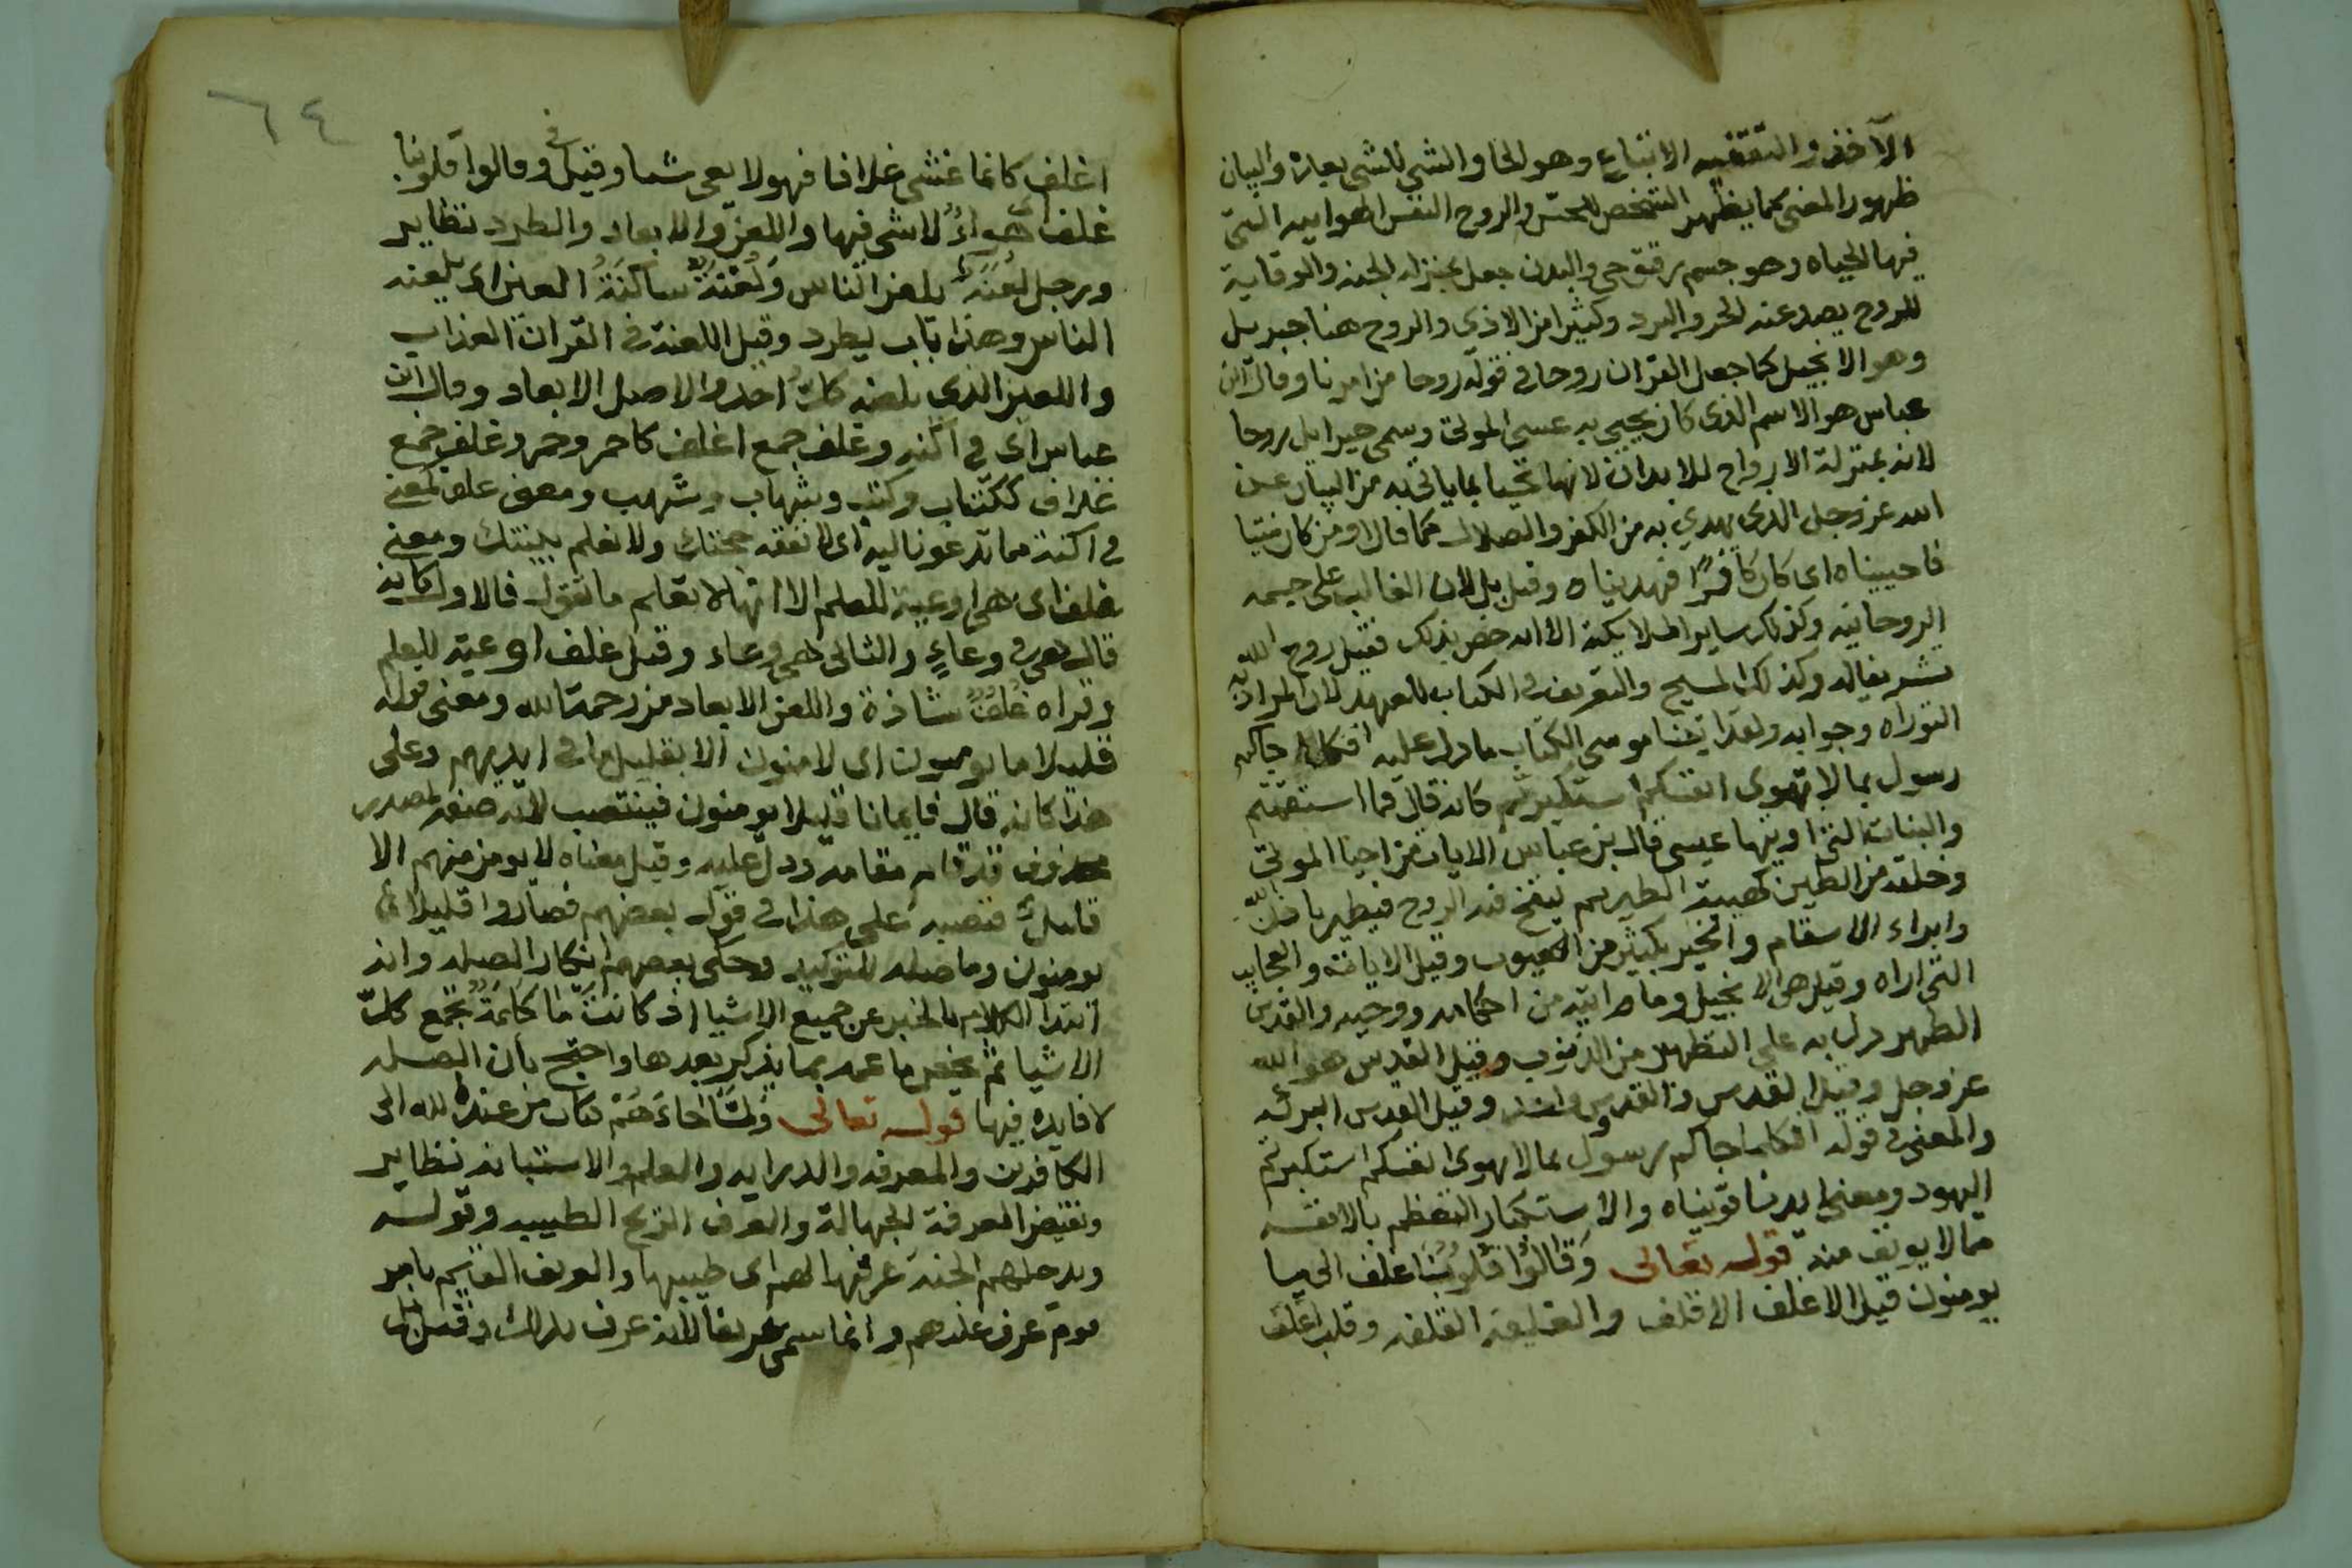 الآخر والتقفيه الاتباع وهو الحاق الشي للشي بعاده والبيان
ظهور المعنى كما يظهر الشخص للحس والروح النفس الهوابيه التي
فيها الحياه وهو جسم رقيق حي والبدن جعل بمنزله الجنه والوقاية
للروح يصد عنه الحر والبرد وكثيرا من الاذى والروح هنا جبريل
وهو الانجيل كما جعل القران روحا في قوله روحا من امرنا وقال ابن
عباس هو الاسم الذى كان يحيي به عيسى الموتى وسمى جبرايل روحا
لانه بمنزلة الارواح للابدان لانها تحيا بما ياتي به من البيان عن
الله عز وجل الذي يهدي به من الكفر والضلال كما قال اومن كان ميتا
فاحييناه اى كان كافرا فهديناه وقيل بل لان الغالب على جسمه
الروحانيه وكذلك ساير الملايكة الا انه خص بذلك فقيل روح الله
تشريفا له وكذلك المسيح والتعريف في الكتاب للعهد لان المراد به
التوراه وجوابه ولقد اتينا موسى الكتاب ما دل عليه افكلما جاكم
رسول بما لا تهوى انفسكم استكبرتم كانه قال فما استقمتم
والبينات التي اوتيها عيسى قال بن عباس الايات من احيا الموتى
وخلقه من الطين كهيئة الطير ثم ينفخ فيه الروح فيطير باذن الله
وابراء الاسقام والخبر بكثير من الغيوب وقيل الايات والعجايب
التي اراه وقيل هي الانجيل وما فيه من احكامه ووحيه والقدس
الطهر دل به على التطهر من الذنوب وقيل القدس هو الله
عز وجل وقيل القدس والقدوس واحد وقيل القدس البركه
والمعني في قوله افكلما جاكم رسول بما لا تهوى انفسكم استكبرتم
اليهود ومعنى ايدناه قويناه والاستكبار التعظم بالانفه
مما لا يونف منه قوله تعالى وقالوا قلوبنا غلف الى ما
يومنون قيل الاغلف الاقلف والغليفه القلفه وقلب اغلف
٦٤
اغلف كانما غشي غلافا فهو لا يعى شيا وقيل في وقالوا قلوبنا
غلف اى هواءٌ لا شي فيها واللعن والابعاد والطرد نظاير
ورجل لُعَنَه يلعن الناس ولُعْنَةٌ ساكنة العين اى يلعنه
الناس وهذا باب يطرد وقيل اللعنة في القران العذاب
واللعين الذي يلعنه كل احد والاصل الابعاد وقال ابن
عباس اى في اكنه وغلف جمع اغلف كاحمر وحمر وغلف جمع
غلاف ككتاب وكتب وشهاب وشهب ومعنى غلف بمعنى
في اكنة مما تدعونا ليه اى لا نفقه حجتك ولا نعلم بينتك ومعنى
غلف اى هي اوعية للعلم الا انها لا تعلم ما تقول فالاول كانه
قال هي في وعاءٍ والثانى هي وعاء وقيل غلف اوعية للعلم
وقراه غُلُفٌ شاذة واللعن الابعاد من رحمة الله ومعنى قوله
قليلا ما يومنون اى لا منون الا بقليل ما في ايديهم وعلى
هذا كانه قال فايمانا قليلا يومنون فينتصب لانه صفة لمصدر
محذوف قد قام مقامه ودل عليه وقيل معناه لا يومن منهم الا
قليل فنصبه على هذا في قول بعضهم فصاروا قليلا ما
يومنون وما صله للتوكيد وحكى بعضهم انكار الصله وانه
ابتدا الكلام بالخبر عن جميع الاشيا اذ كانت ما كلمةٌ تجمع كل
الاشيا ثم يخص ما عمه بما يذكر بعدها واحتج بان الصله
لا فايده فيها قوله تعالى ولما جاءهم كتاب من عند الله الى
الكافرين والمعرفه والدرايه والعلم والاستبانه نظاير
ونقيض المعرفة الجهالة والعرف الريح الطيبه وقوله
ويدخلهم الجنه عرفها لهم اى طيبها والعريف القايم بامر
قوم عرف عليهم وانما سمى عريفا لانه عرف بذلك وقيل